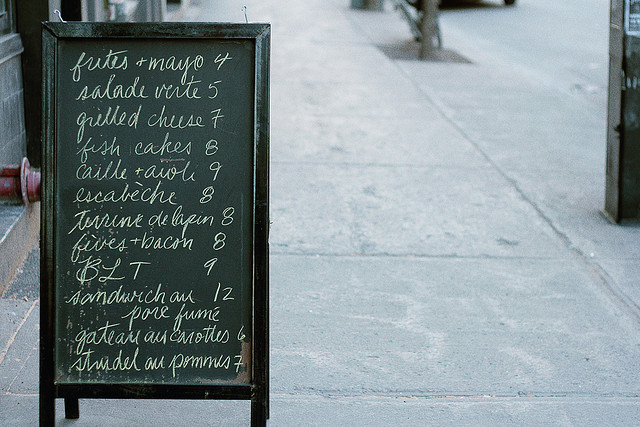 frites + mayo 4
salade verte 5
grilled cheese 7
fish cakes 8
caille + aioli 9
escabèche 8
terrine de lapin 8
fèves + bacon 8
BLT 9
sandwich au 12
porc fumé
gateau aux carottes 6
strudel au pommes 7